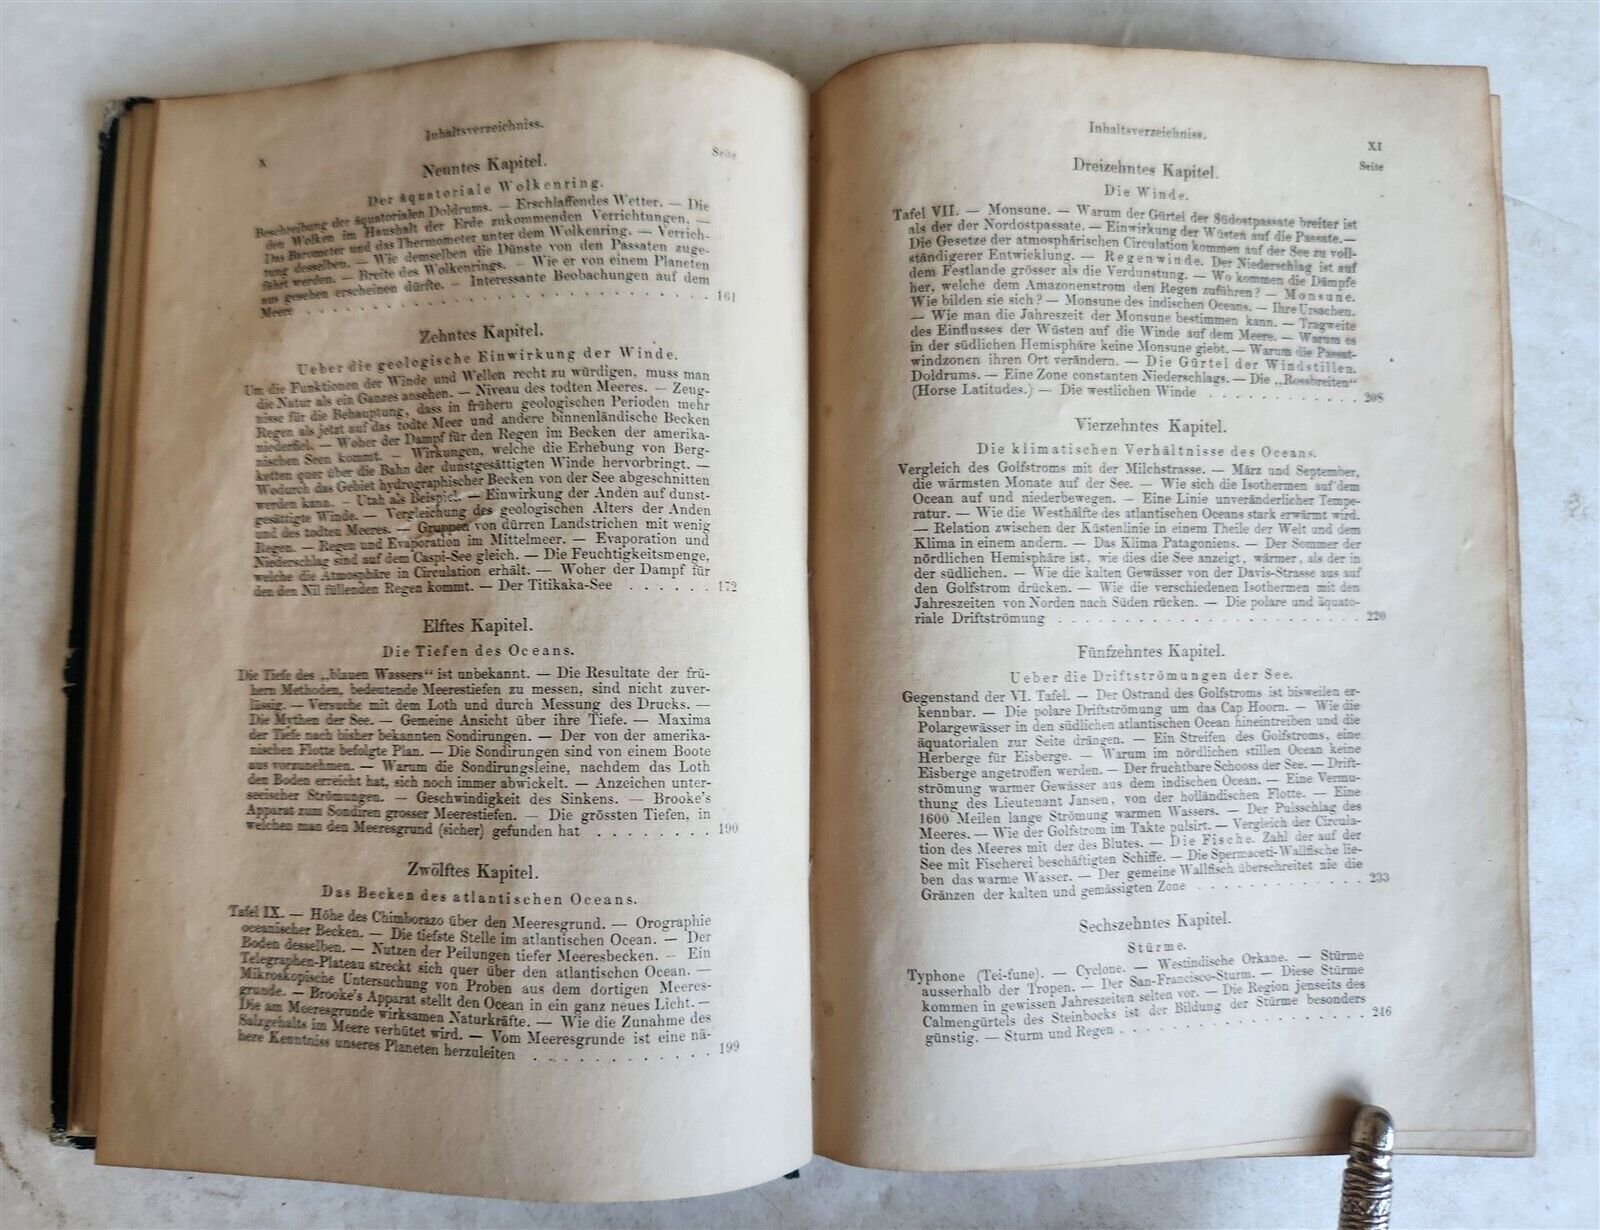 Inhaltsverzeichniss.
X
Seite
Neuntes Kapitel.
Der äquatoriale Wolkenring.
Beschreibung der äquatorialen Doldrums. — Erschlaffendes Wetter. — Die
den Wolken im Haushalt der Erde zukommenden Verrichtungen. —
Das Barometer und das Thermometer unter dem Wolkenring. — Verrich-
tung desselben. — Wie demselben die Dünste von den Passaten zuge-
führt werden. — Breite des Wolkenrings. — Wie er von einem Planeten
aus gesehen erscheinen dürfte. — Interessante Beobachtungen auf dem
Meere . . . . . . . . . . . . . . . . . . . . 161
Zehntes Kapitel.
Ueber die geologische Einwirkung der Winde.
Um die Funktionen der Winde und Wellen recht zu würdigen, muss man
die Natur als ein Ganzes ansehen. — Niveau des todten Meeres. — Zeug-
nisse für die Behauptung, dass in frühern geologischen Perioden mehr
Regen als jetzt auf das todte Meer und andere binnenländische Becken
niederfiel. — Woher der Dampf für den Regen im Becken der amerika-
nischen Seen kommt. — Wirkungen, welche die Erhebung von Berg-
ketten quer über die Bahn der dunstgesättigten Winde hervorbringt. —
Wodurch das Gebiet hydrographischer Becken von der See abgeschnitten
werden kann. — Utah als Beispiel. — Einwirkung der Anden auf dunst-
gesättigte Winde. — Vergleichung des geologischen Alters der Anden
und des todten Meeres. — Gruppen von dürren Landstrichen mit wenig
Regen. — Regen und Evaporation im Mittelmeer. — Evaporation und
Niederschlag sind auf dem Caspi-See gleich. — Die Feuchtigkeitsmenge,
welche die Atmosphäre in Circulation erhält. — Woher der Dampf für
den den Nil füllenden Regen kommt. — Der Titikaka-See . . . . . . 172
Elftes Kapitel.
Die Tiefen des Oceans.
Die Tiefe des „blauen Wassers“ ist unbekannt. — Die Resultate der frü-
hern Methoden, bedeutende Meerestiefen zu messen, sind nicht zuver-
lässig. — Versuche mit dem Loth und durch Messung des Drucks. —
Die Mythen der See. — Gemeine Ansicht über ihre Tiefe. — Maxima
der Tiefe nach bisher bekannten Sondirungen. — Der von der amerika-
nischen Flotte befolgte Plan. — Die Sondirungen sind von einem Boote
aus vorzunehmen. — Warum die Sondirungsleine, nachdem das Loth
den Boden erreicht hat, sich noch immer abwickelt. — Anzeichen unter-
seeischer Strömungen. — Geschwindigkeit des Sinkens. — Brooke's
Apparat zum Sondiren grosser Meerestiefen. — Die grössten Tiefen, in
welchen man den Meeresgrund (sicher) gefunden hat . . . . . . . . 190
Zwölftes Kapitel.
Das Becken des atlantischen Oceans.
Tafel IX. — Höhe des Chimborazo über den Meeresgrund. — Orographie
oceanischer Becken. — Die tiefste Stelle im atlantischen Ocean. — Der
Boden desselben. — Nutzen der Peilungen tiefer Meeresbecken. — Ein
Telegraphen-Plateau streckt sich quer über den atlantischen Ocean. —
Mikroskopische Untersuchung von Proben aus dem dortigen Meeres-
grunde. — Brooke's Apparat stellt den Ocean in ein ganz neues Licht. —
Die am Meeresgrunde wirksamen Naturkräfte. — Wie die Zunahme des
Salzgehalts im Meere verhütet wird. — Vom Meeresgrunde ist eine nä-
here Kenntniss unseres Planeten herzuleiten . . . . . . . . . . . . 199
Inhaltsverzeichniss.
XI
Seite
Dreizehntes Kapitel.
Die Winde.
Tafel VII. — Monsune. — Warum der Gürtel der Südostpassate breiter ist
als der der Nordostpassate. — Einwirkung der Wüsten auf die Passate. —
Die Gesetze der atmosphärischen Circulation kommen auf der See zu voll-
ständigerer Entwicklung. — Regenwinde. Der Niederschlag ist auf
dem Festlande grösser als die Verdunstung. — Wo kommen die Dämpfe
her, welche dem Amazonenstrom den Regen zuführen? — Monsune.
Wie bilden sie sich? — Monsune des indischen Oceans. — Ihre Ursachen.
— Wie man die Jahreszeit der Monsune bestimmen kann. — Tragweite
des Einflusses der Wüsten auf die Winde auf dem Meere. — Warum es
in der südlichen Hemisphäre keine Monsune giebt. — Warum die Passat-
windzonen ihren Ort verändern. — Die Gürtel der Windstillen.
Doldrums. — Eine Zone constanten Niederschlags. — Die „Rossbreiten“
(Horse Latitudes.) — Die westlichen Winde . . . . . . . . . . . . 208
Vierzehntes Kapitel.
Die klimatischen Verhältnisse des Oceans.
Vergleich des Golfstroms mit der Milchstrasse. — März und September,
die wärmsten Monate auf der See. — Wie sich die Isothermen auf dem
Ocean auf und niederbewegen. — Eine Linie unveränderlicher Tempe-
ratur. — Wie die Westhälfte des atlantischen Oceans stark erwärmt wird.
— Relation zwischen der Küstenlinie in einem Theile der Welt und dem
Klima in einem andern. — Das Klima Patagoniens. — Der Sommer der
nördlichen Hemisphäre ist, wie dies die See anzeigt, wärmer, als der in
der südlichen. — Wie die kalten Gewässer von der Davis-Strasse aus auf
den Golfstrom drücken. — Wie die verschiedenen Isothermen mit den
Jahreszeiten von Norden nach Süden rücken. — Die polare und äquato-
riale Driftströmung . . . . . . . . . . . . . . . . . . . . 220
Fünfzehntes Kapitel.
Ueber die Driftströmungen der See.
Gegenstand der VI. Tafel. — Der Ostrand des Golfstroms ist bisweilen er-
kennbar. — Die polare Driftströmung um das Cap Hoorn. — Wie die
Polargewässer in den südlichen atlantischen Ocean hineintreiben und die
äquatorialen zur Seite drängen. — Ein Streifen des Golfstroms, eine
Herberge für Eisberge. — Warum im nördlichen stillen Ocean keine
Eisberge angetroffen werden. — Der fruchtbare Schooss der See. — Drift-
strömung warmer Gewässer aus dem indischen Ocean. — Eine Vermu-
thung des Lieutenant Jansen, von der holländischen Flotte. — Eine
1600 Meilen lange Strömung warmen Wassers. — Der Pulsschlag des
Meeres. — Wie der Golfstrom im Takte pulsirt. — Vergleich der Circula-
tion des Meeres mit der des Blutes. — Die Fische. Zahl der auf der
See mit Fischerei beschäftigten Schiffe. — Die Spermaceti-Wallfische lie-
ben das warme Wasser. — Der gemeine Wallfisch überschreitet nie die
Gränzen der kalten und gemässigten Zone . . . . . . . . . . . . 233
Sechszehntes Kapitel.
Stürme.
Typhone (Tei-fune). — Cyclone. — Westindische Orkane. — Stürme
ausserhalb der Tropen. — Der San-Francisco-Sturm. — Diese Stürme
kommen in gewissen Jahreszeiten selten vor. — Die Region jenseits des
Calmengürtels des Steinbocks ist der Bildung der Stürme besonders
günstig. — Sturm und Regen . . . . . . . . . . . . . . . . . 246